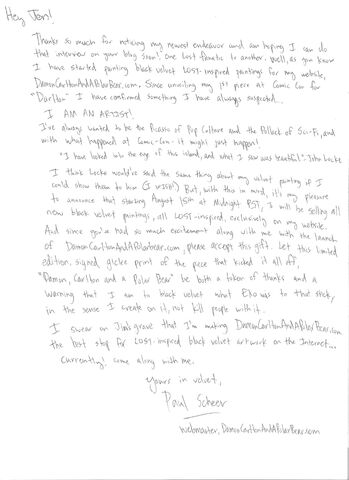 Hey Jen!
Thanks so much for noticing my newest endeavor and am hoping I can do
that interview on your blog soon! One Lost fanatic to another. Well, as you know
I have started painting black velvet LOST-inspired paintings for my website,
DamonCarltonAndAPolarBear.com. Since unveiling my 1st piece at Comic Con for
"Darlton" I have confirmed something I have always suspected...
I AM AN ARTIST!
I've always wanted to be the Picasso of Pop Culture and the Pollock of Sci-Fi, and
with what happened at Comic-Con it might just happen!
"I have looked into the eye of this island, and what I saw was beautiful" - John Locke
I think Locke would've said the same thing about my velvet painting if I
could show them to him (I WISH!) But, with this in mind, it's my pleasure
to announce that starting August 15th at Midnight PST, I will be selling all
new black velvet paintings, all LOST-inspired, exclusively on my website.
And since you've had so much excitement along with me with the launch
of DamonCarltonAndAPolarbear.com, please accept this gift. Let this limited
edition, signed, giclee print of the piece that kicked it all off,
"Damon, Carlton and a Polar Bear" be both a token of thanks and a
warning that I am to black velvet what Eko was to that stick,
in the sense I create on it, not kill people with it.
I swear on Jin's grave that I'm making DamonCarltonAndAPolarBear.com
the best stop for LOST-inspired black velvet artwork on the Internet...
Currently! Come along with me.
Yours in velvet,
Paul Scheer
webmaster, DamonCarltonAndAPolarBear.com